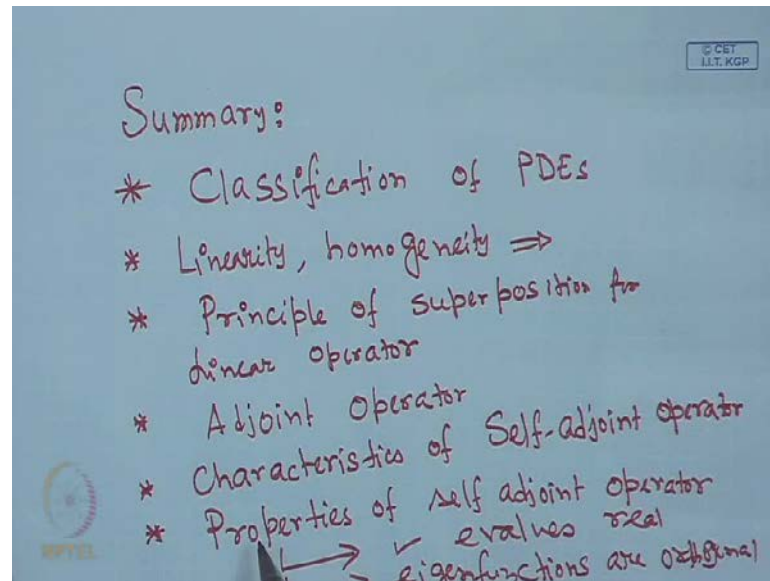 © CET
I.I.T. KGP
Summary:
* Classification of PDEs
* Linearity, homogeneity ⇒
* Principle of superposition for
Linear operator
* Adjoint Operator
* Characteristics of Self-adjoint operator
* Properties of self adjoint operator
→ ✓ evalues real
eigenfunctions are orthogonal
NPTEL